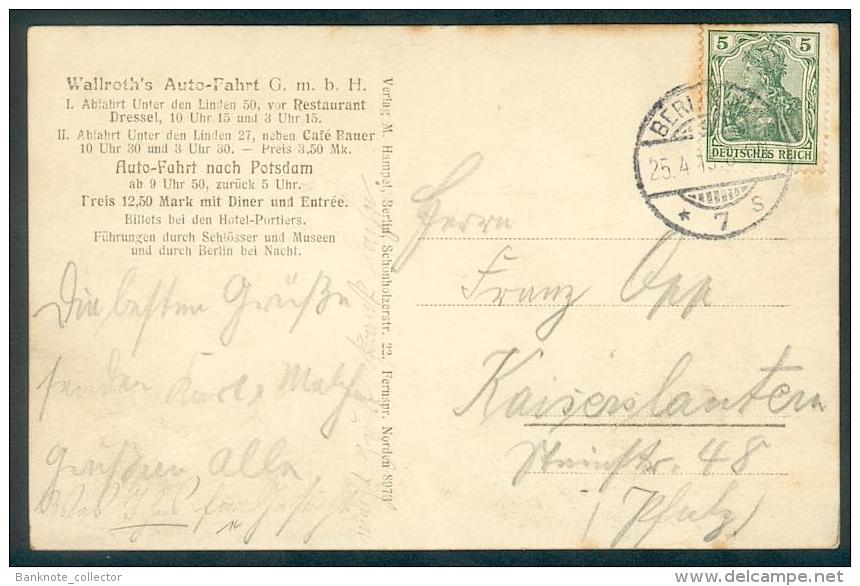 Wallroth's Auto-Fahrt G. m. b. H.
I. Abfahrt Unter den Linden 50, vor Restaurant
Dressel, 10 Uhr 15 und 3 Uhr 15.
II. Abfahrt Unter den Linden 27, neben Café Bauer
10 Uhr 30 und 3 Uhr 30. — Preis 3,50 Mk.
Auto-Fahrt nach Potsdam
ab 9 Uhr 50, zurück 5 Uhr.
Preis 12,50 Mark mit Diner und Entrée.
Billets bei den Hotel-Portiers.
Führungen durch Schlösser und Museen
und durch Berlin bei Nacht.
Die besten Grüße
senden Karl
Grüßen alle
Verlag M. Hampel, Berlin, Schönholzerstr. 22, Fernspr. Norden 8973
5 5
DEUTSCHES REICH
BERL
25.4
* 7 S
Herrn
Franz Opp
Kaiserslautern
Steinstr. 48
(Pfalz)
Banknote_collector
www.delcampe.net